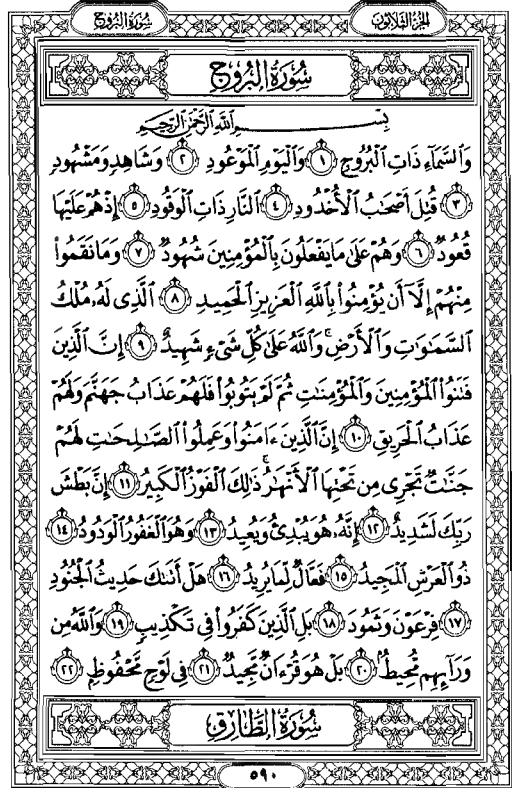 الجزء الثلاثون
سورة البروج
سُورَةُ البُرُوجِ
بِسْمِ اللَّهِ الرَّحْمَٰنِ الرَّحِيمِ
وَالسَّمَاءِ ذَاتِ الْبُرُوجِ ١ وَالْيَوْمِ الْمَوْعُودِ ٢ وَشَاهِدٍ وَمَشْهُودٍ
٣ قُتِلَ أَصْحَٰبُ الْأُخْدُودِ ٤ النَّارِ ذَاتِ الْوَقُودِ ٥ إِذْ هُمْ عَلَيْهَا
قُعُودٌ ٦ وَهُمْ عَلَىٰ مَا يَفْعَلُونَ بِالْمُؤْمِنِينَ شُهُودٌ ٧ وَمَا نَقَمُوا
مِنْهُمْ إِلَّا أَن يُؤْمِنُوا بِاللَّهِ الْعَزِيزِ الْحَمِيدِ ٨ الَّذِي لَهُۥ مُلْكُ
السَّمَٰوَٰتِ وَالْأَرْضِ ۚ وَاللَّهُ عَلَىٰ كُلِّ شَيْءٍ شَهِيدٌ ٩ إِنَّ الَّذِينَ
فَتَنُوا الْمُؤْمِنِينَ وَالْمُؤْمِنَٰتِ ثُمَّ لَمْ يَتُوبُوا فَلَهُمْ عَذَابُ جَهَنَّمَ وَلَهُمْ
عَذَابُ الْحَرِيقِ ١٠ إِنَّ الَّذِينَ ءَامَنُوا وَعَمِلُوا الصَّٰلِحَٰتِ لَهُمْ
جَنَّٰتٌ تَجْرِي مِن تَحْتِهَا الْأَنْهَٰرُ ۚ ذَٰلِكَ الْفَوْزُ الْكَبِيرُ ١١ إِنَّ بَطْشَ
رَبِّكَ لَشَدِيدٌ ١٢ إِنَّهُۥ هُوَ يُبْدِئُ وَيُعِيدُ ١٣ وَهُوَ الْغَفُورُ الْوَدُودُ ١٤
ذُو الْعَرْشِ الْمَجِيدُ ١٥ فَعَّالٌ لِّمَا يُرِيدُ ١٦ هَلْ أَتَىٰكَ حَدِيثُ الْجُنُودِ
١٧ فِرْعَوْنَ وَثَمُودَ ١٨ بَلِ الَّذِينَ كَفَرُوا فِي تَكْذِيبٍ ١٩ وَاللَّهُ مِن
وَرَآئِهِم مُّحِيطٌ ٢٠ بَلْ هُوَ قُرْءَانٌ مَّجِيدٌ ٢١ فِي لَوْحٍ مَّحْفُوظٍ ٢٢
سُورَةُ الطَّارِقِ
٥٩٠